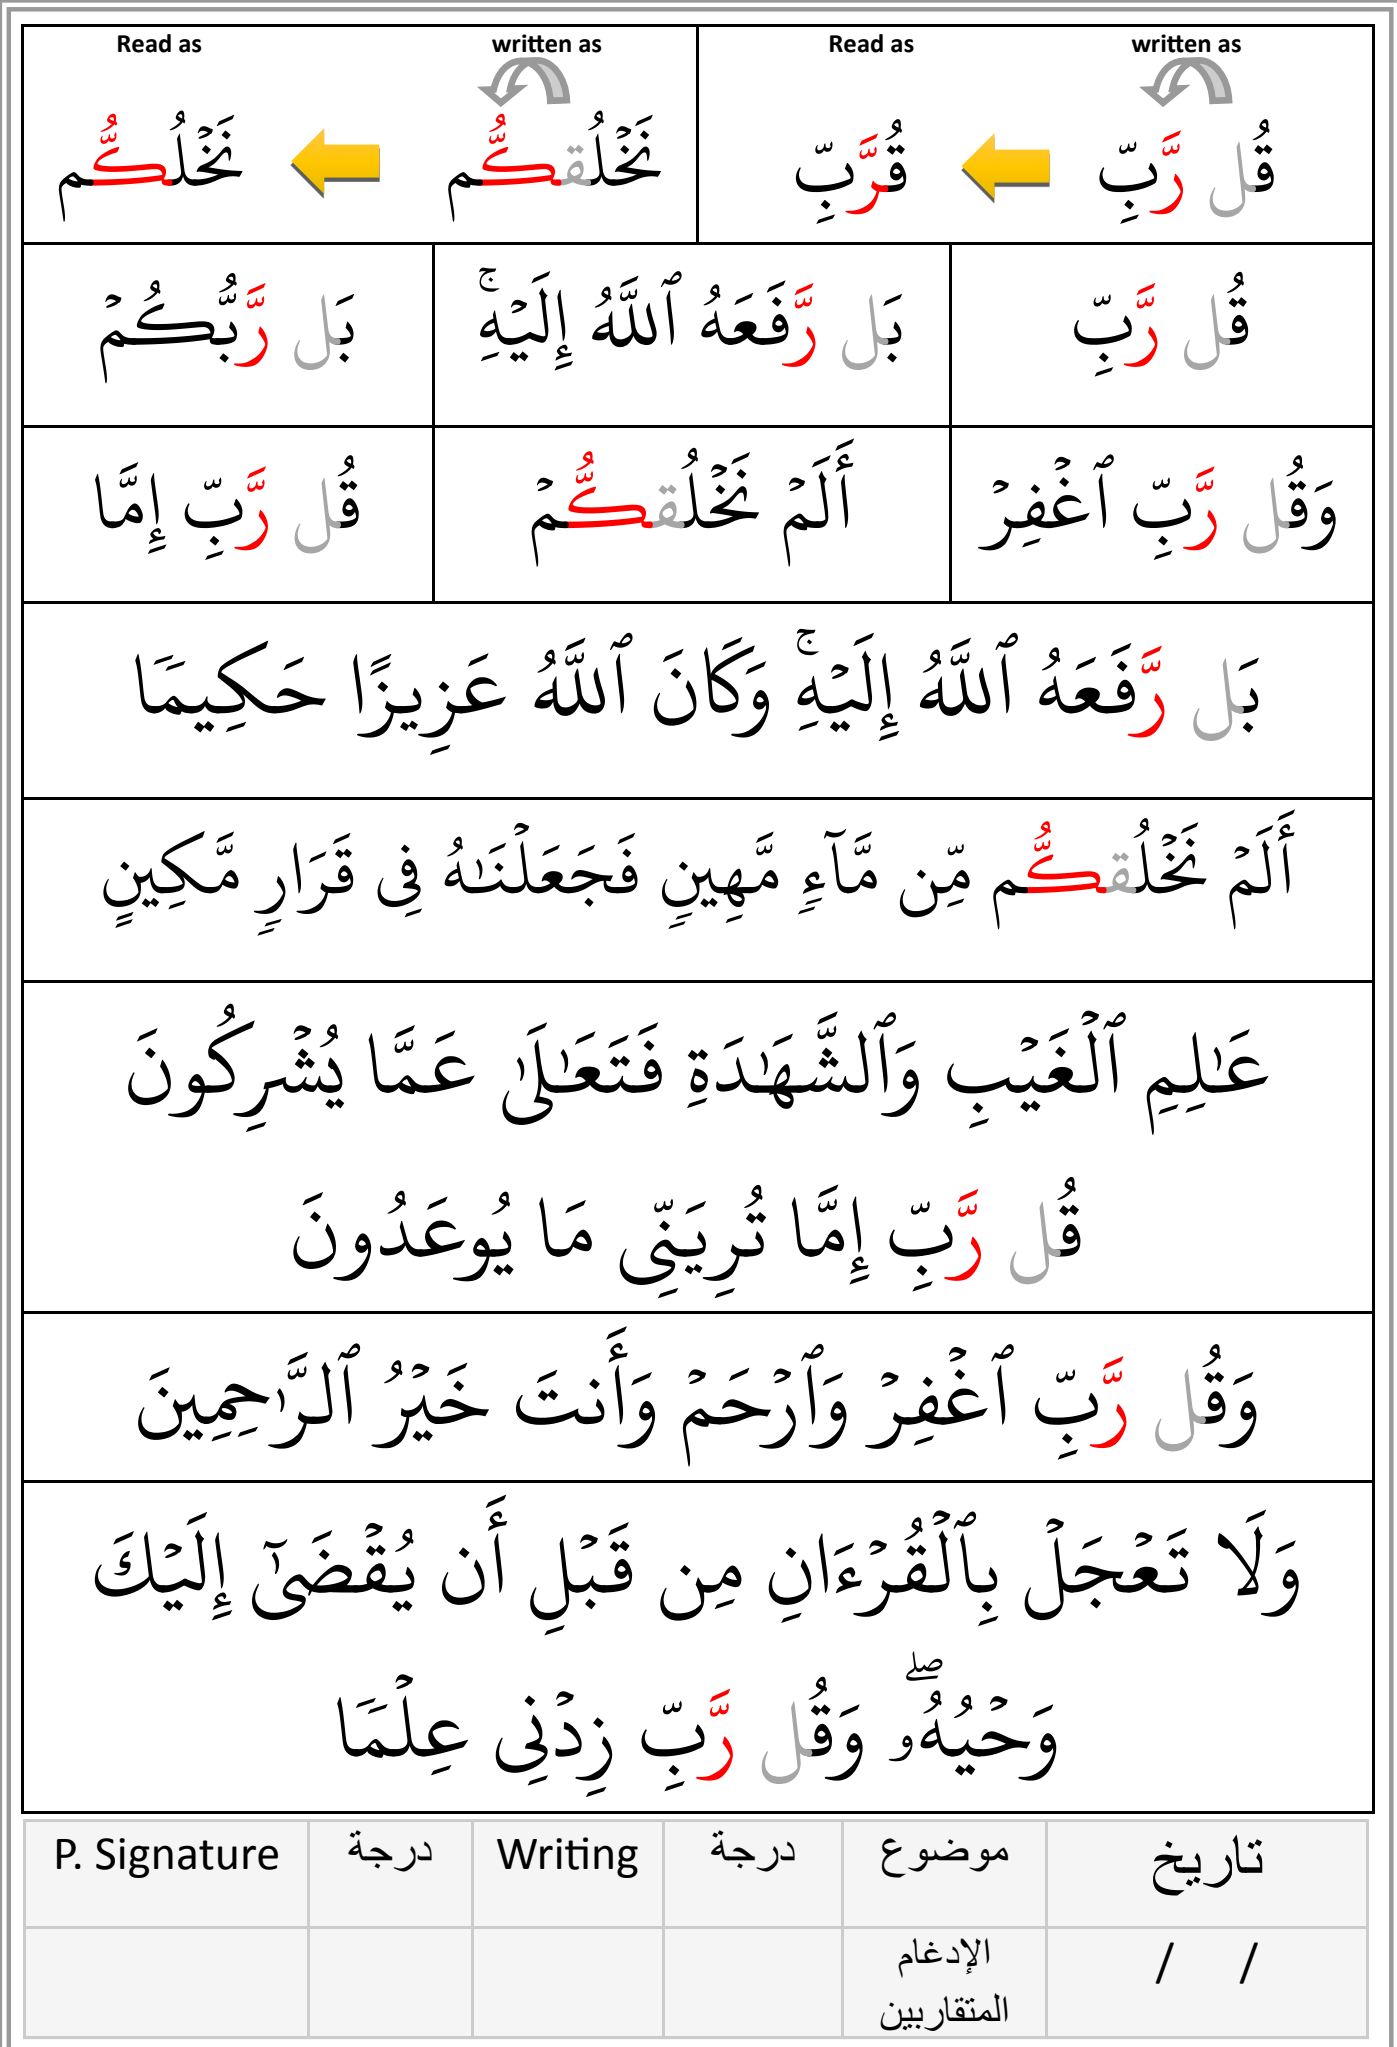 written as Read as written as Read as
قُل رَّبِّ قُرَّبِّ نَخْلُقكُّم نَخْلُكُّم
قُل رَّبِّ بَل رَّفَعَهُ ٱللَّهُ إِلَيْهِۚ بَل رَّبُّكُمْ
وَقُل رَّبِّ ٱغْفِرْ أَلَمْ نَخْلُقكُّمْ قُل رَّبِّ إِمَّا
بَل رَّفَعَهُ ٱللَّهُ إِلَيْهِۚ وَكَانَ ٱللَّهُ عَزِيزًا حَكِيمَٗا
أَلَمْ نَخْلُقكُّم مِّن مَّآءٖ مَّهِينٖ فَجَعَلْنَٰهُ فِى قَرَارٖ مَّكِينٍ
عَٰلِمِ ٱلْغَيْبِ وَٱلشَّهَٰدَةِ فَتَعَٰلَىٰ عَمَّا يُشْرِكُونَ
قُل رَّبِّ إِمَّا تُرِيَنِّى مَا يُوعَدُونَ
وَقُل رَّبِّ ٱغْفِرْ وَٱرْحَمْ وَأَنتَ خَيْرُ ٱلرَّٰحِمِينَ
وَلَا تَعْجَلْ بِٱلْقُرْءَانِ مِن قَبْلِ أَن يُقْضَىٰٓ إِلَيْكَ
وَحْيُهُۥۖ وَقُل رَّبِّ زِدْنِى عِلْمَٗا
تاريخ موضوع درجة Writing درجة P. Signature
/ / الإدغام
المتقاربين